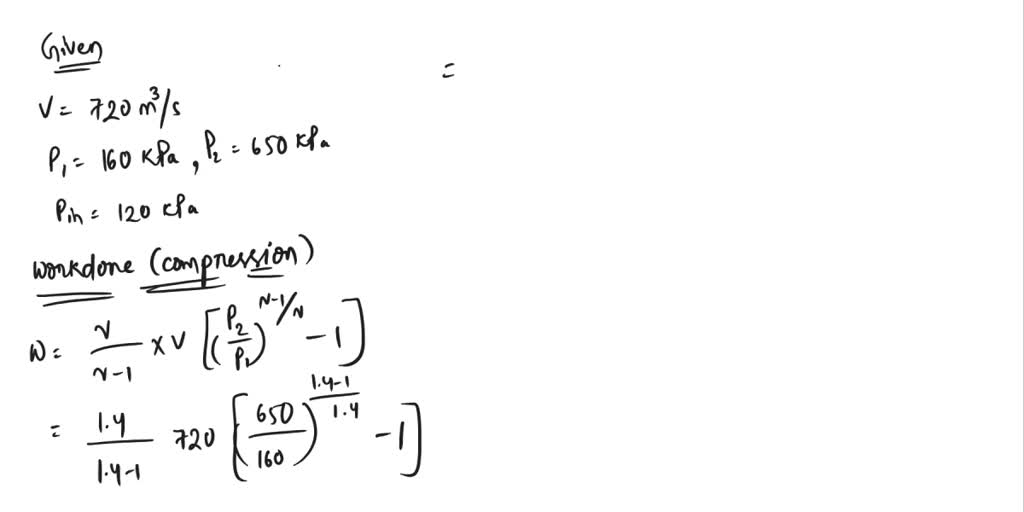 Given
=
V = 720 m³/s
P₁ = 160 kPa, P₂ = 650 kPa
Pin = 120 kPa
workdone (compression)
W = γ/γ-1 × V [(P₂/P₁)^γ-1/γ - 1]
= 1.4/1.4-1 720 [(650/160)^1.4-1/1.4 - 1]